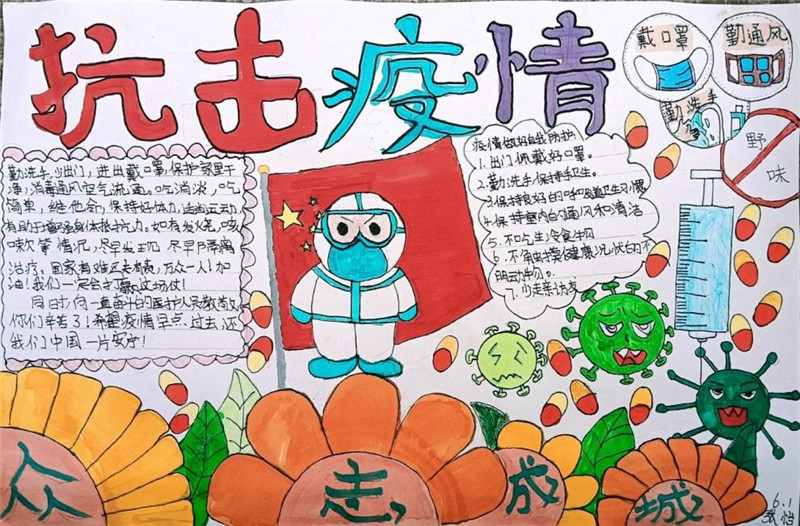 抗击疫情
戴口罩
勤通风
勤洗手
野味
勤洗手,少出门,进出戴口罩,保护家里干
净,消毒通风空气流通。吃清淡,吃
简单,保持好体力,
有助于增强身体抵抗力。如有发烧,咳
嗽等情况,尽早发现,尽早隔离
治疗。国家有难
油!我们一定会打赢这场仗!
你们辛苦了!希望疫情早点过去,还
我们中国一片安宁!
疫情做好自我防护:
1.出门佩戴好口罩。
2.勤洗手保持手卫生。
3.保持良好的呼吸道卫生习惯
4.保持室内的通风和清洁
5.不吃生冷食物
6.不
明动物。
7.少走亲访友
众志成城
6.1